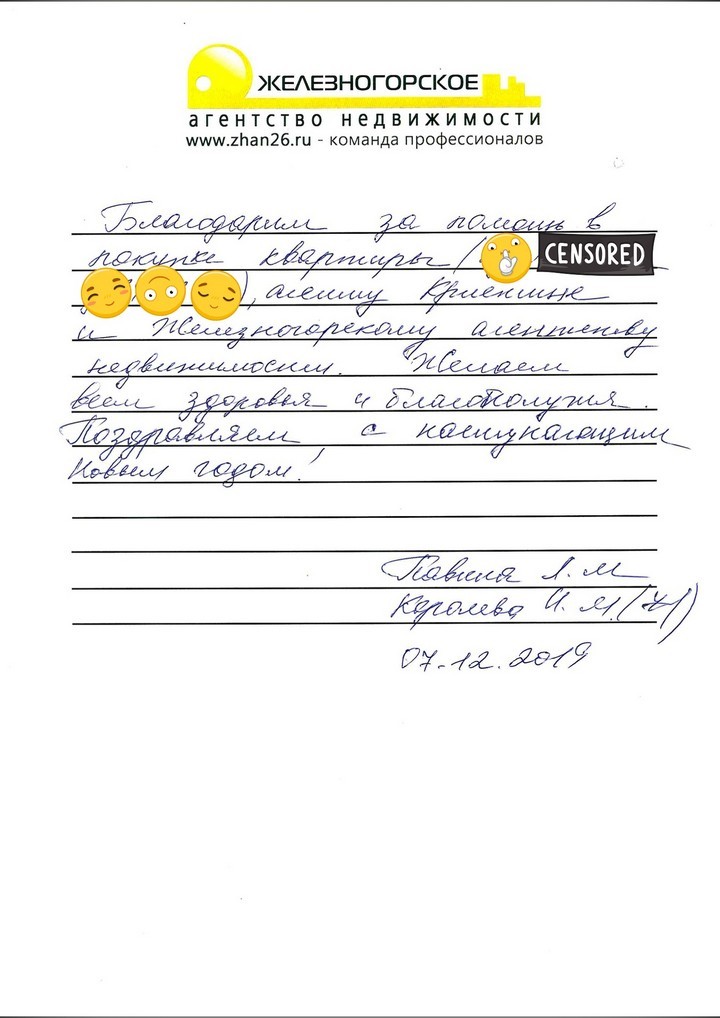 ЖЕЛЕЗНОГОРСКОЕ
агентство недвижимости
www.zhan26.ru - команда профессионалов
Благодарим за помощь в
покупке квартиры (
CENSORED
), агенту Кристине
и Железногорскому агентству
недвижимости. Желаем
всем здоровья и благополучия.
Поздравляем с наступающим
Новым годом!
Л. М
Королева И. М.
07.12.2019